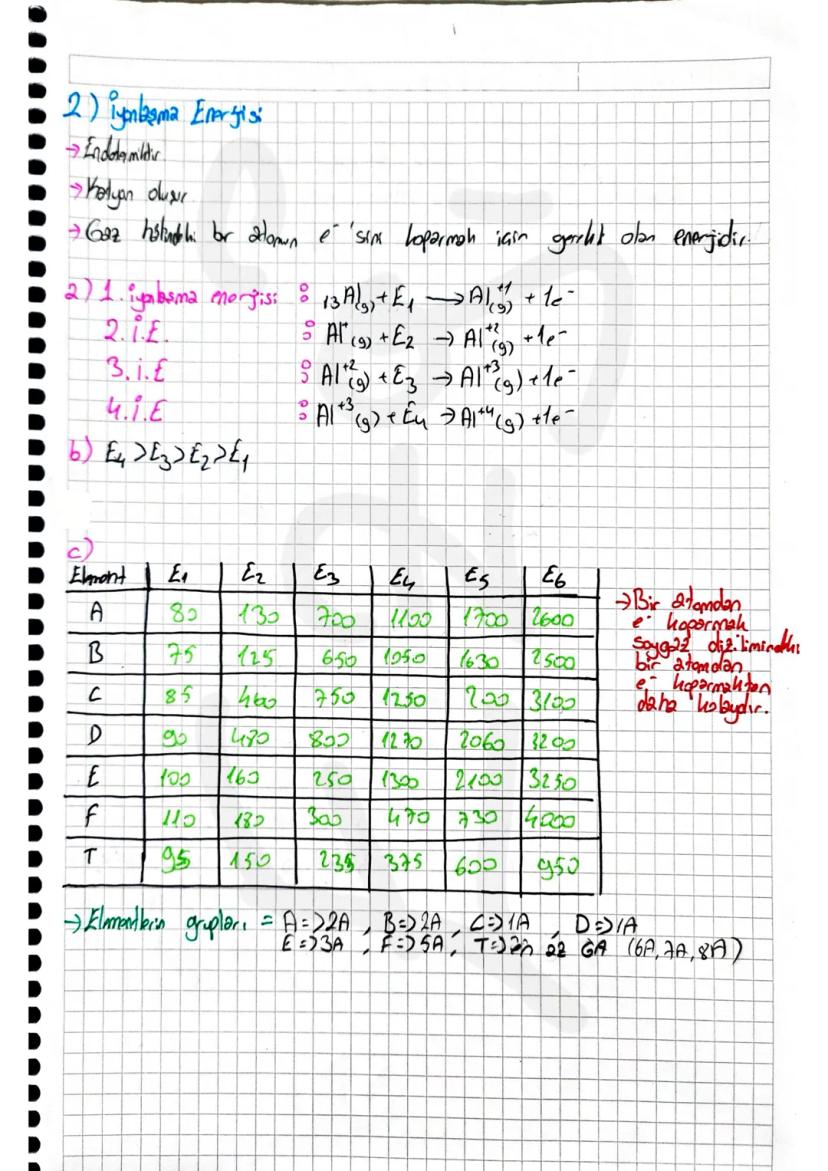 2) İyonlaşma Enerjisi
→ Endotermiktir
→ Katyon oluşur
→ Gaz halindeki bir atomun e⁻'sini koparmak için gerekli olan enerjidir.
a) 1. iyonlaşma enerjisi : ₁₃Al(g) + E₁ → Al⁺¹(g) + 1e⁻
2.İ.E. : Al⁺(g) + E₂ → Al⁺²(g) + 1e⁻
3.İ.E : Al⁺²(g) + E₃ → Al⁺³(g) + 1e⁻
4.İ.E : Al⁺³(g) + E₄ → Al⁺⁴(g) + 1e⁻
b) E₄ > E₃ > E₂ > E₁
c)
Element E₁ E₂ E₃ E₄ E₅ E₆
A 80 130 700 1100 1700 2600
B 75 125 650 1050 1630 2500
C 85 460 750 1250 200 3100
D 90 480 800 1270 2060 3200
E 100 160 250 1300 2100 3250
F 110 180 300 470 730 4000
T 95 150 235 375 600 950
→ Bir atomdan
e⁻ koparmak
soygaz diziliminde
bir atomdan
e⁻ koparmaktan
daha kolaydır.
→ Elementlerin grupları = A => 2A , B => 2A , C => 1A , D => 1A
E => 3A , F => 5A , T => en az 6A (6A, 7A, 8A)